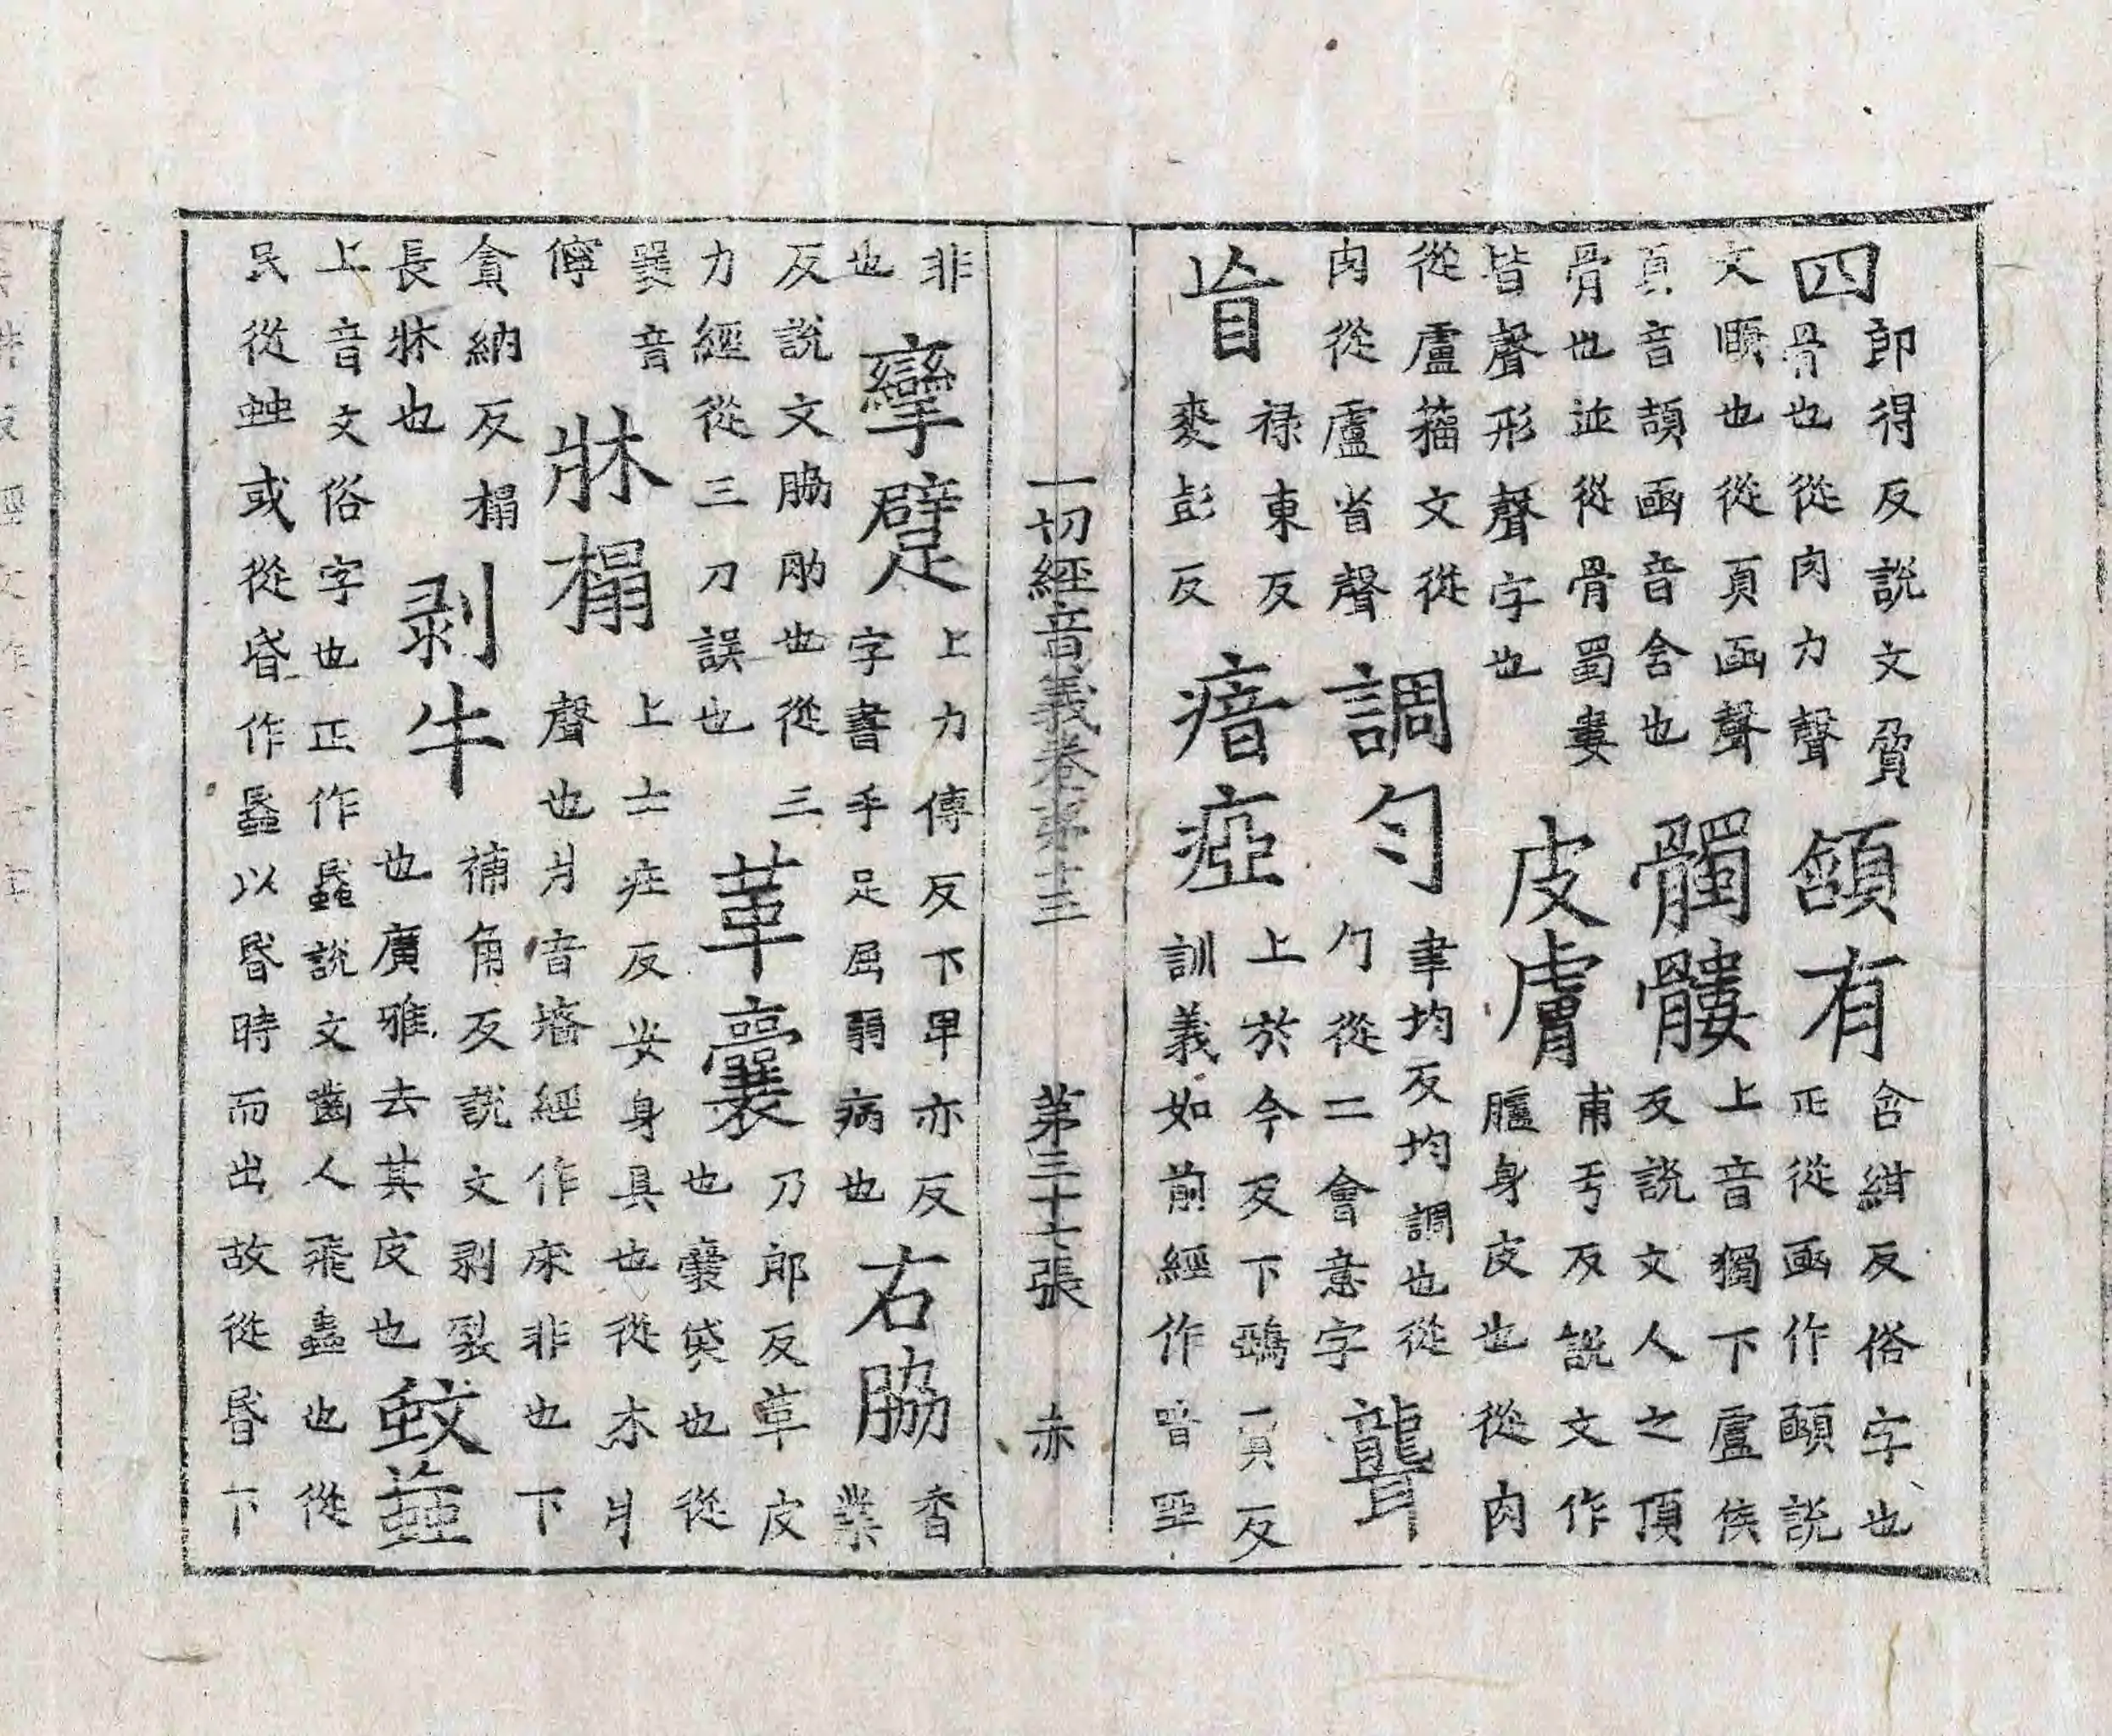 四
郎得反說文脅
骨也從肉力聲
頷有
含紺反俗字也
正從凾作頤說
文頤也從頁凾聲
頁音頡凾音含也
髑髏
上音獨下盧侯
反說文人之頂
骨也並從骨蜀婁
皆聲形聲字也
皮膚
甫亐反說文作
臚身皮也從肉
從盧籀文從
肉從盧省聲
調勻
聿均反均調也從
勹從二會意字
聾
盲
祿東反
麥彭反
瘖瘂
上於今反下鵶賈反
訓義如前經作喑啞
一切經音義卷第十三 第三十七張 赤
非
也
攣躄
上力傳反下卑亦反
字書手足屈弱病也
右脇
香
業
反說文脇肋也從三
力經從三刀誤也
革囊
乃郎反革皮
也囊袋也從
㯻音
儜
牀榻
上士疘反安身具也從木爿
聲也爿音牆經作床非也下
貪納反榻
長牀也
剥牛
補角反說文剥裂
也廣雅去其皮也
蚊䖟
上音文俗字也正作蟁說文齧人飛蟲也從
民從䖵或從昏作䘇以昬時而出故從昬下